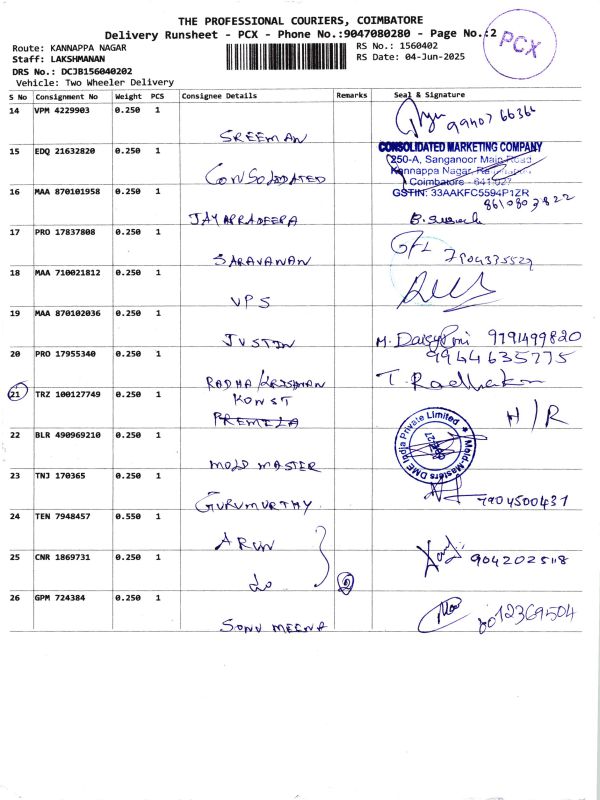 THE PROFESSIONAL COURIERS, COIMBATORE
Delivery Runsheet - PCX - Phone No.:9047080280 - Page No.:2
PCX
Route: KANNAPPA NAGAR
RS No.: 1560402
Staff: LAKSHMANAN
RS Date: 04-Jun-2025
DRS No.: DCJB156040202
Vehicle: Two Wheeler Delivery
S No Consignment No Weight PCS Consignee Details Remarks Seal & Signature
14 VPM 4229903 0.250 1
SREEMAN
15 EDQ 21632820 0.250 1
CONSOLIDATED
CONSOLIDATED MARKETING COMPANY
250-A, Sanganoor Main Road
Kannappa Nagar,
Coimbatore - 641 027
GSTIN: 33AAKFC5594P1ZR
16 MAA 870101958 0.250 1
JAYAPRADEEPA
17 PRO 17837808 0.250 1
SARAVANAN
GFL
18 MAA 710021812 0.250 1
VPS
19 MAA 870102036 0.250 1
JUSTIN
9791499820
20 PRO 17955340 0.250 1
9944635775
RADHA KRISHNAN
21 TRZ 100127749 0.250 1
KONST
PREMILA
H/R
22 BLR 490969210 0.250 1
MOLD MASTER
Mold-Masters DME India Private Limited
23 TNJ 170365 0.250 1
GURUMURTHY
7904500437
24 TEN 7948457 0.550 1
ARUN
25 CNR 1869731 0.250 1
Do
9042025118
26 GPM 724384 0.250 1
SONU MEENA